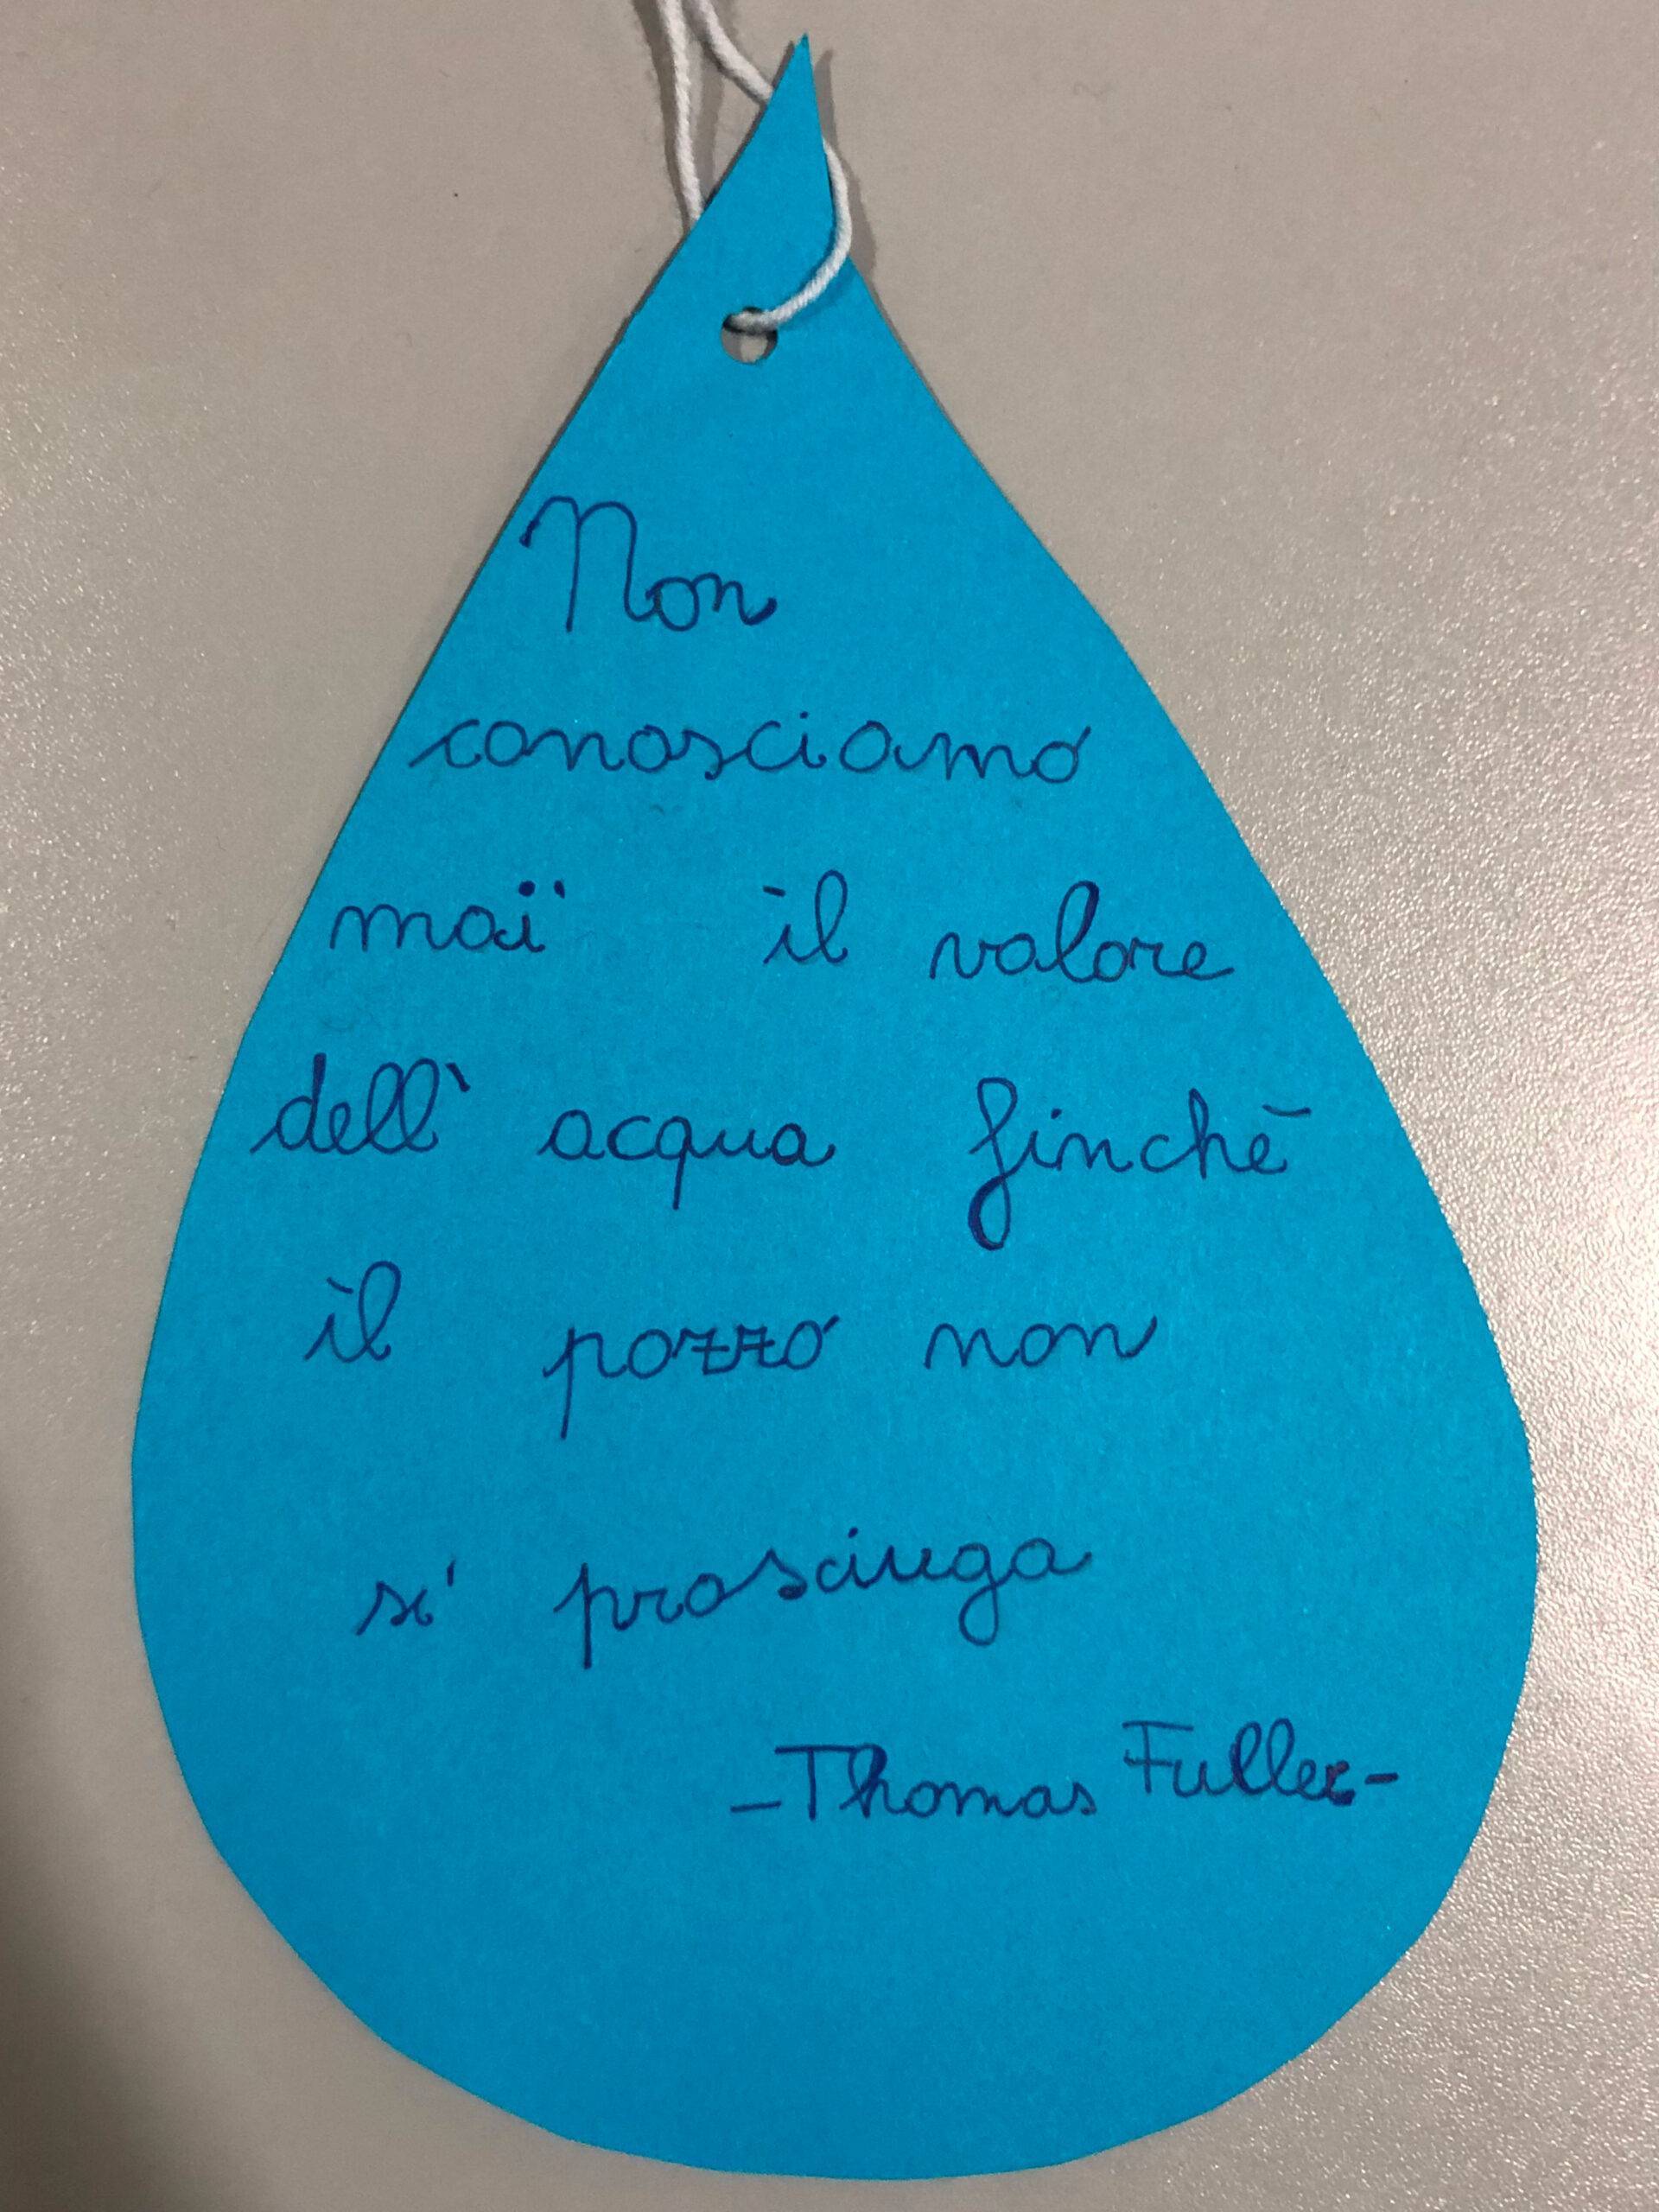 Non
conosciamo
mai il valore
dell' acqua finchè
il pozzo non
si prosciuga
-Thomas Fuller-